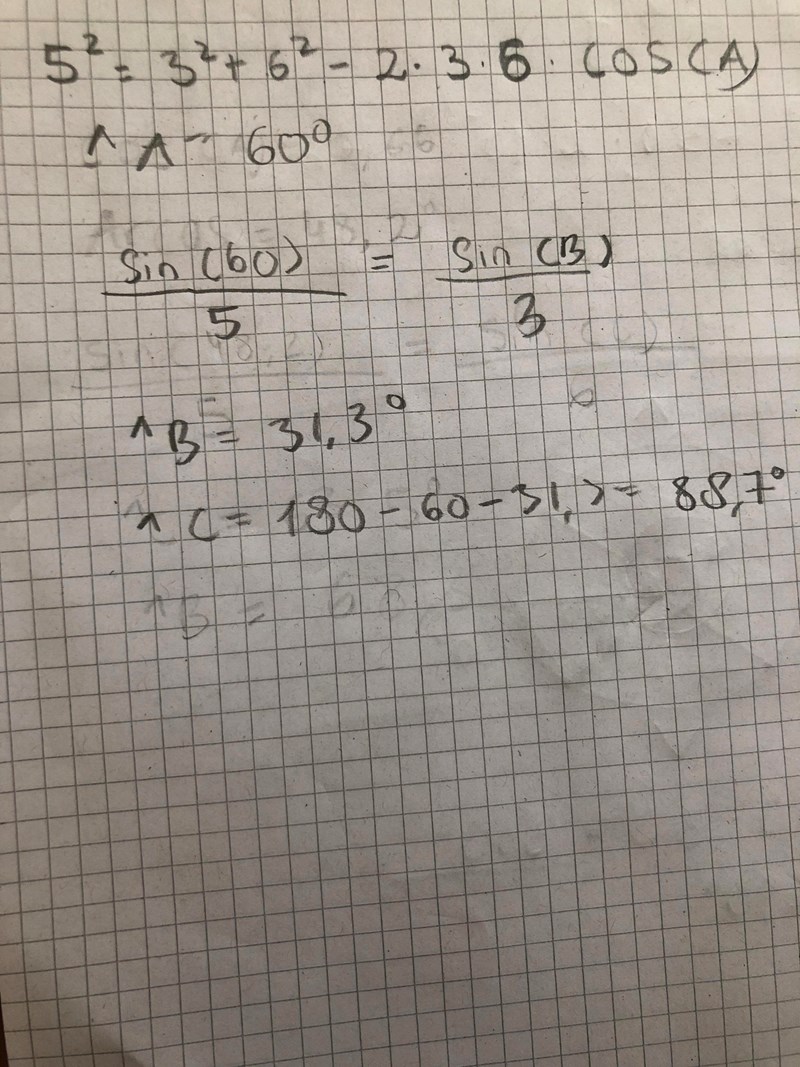 5² = 3² + 6² - 2 · 3 · 6 · COS(A)
^ A = 60°
sin(60) = sin(B)
5 3
^ B = 31,3°
^ C = 180 - 60 - 31,3 = 88,7°